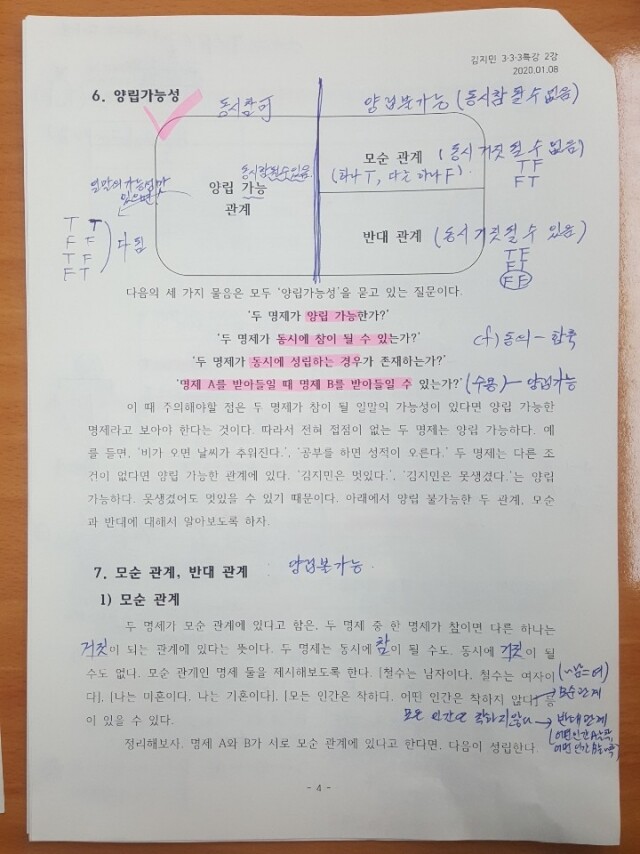 김지민 3·3·3특강 2강
2020.01.08
6. 양립가능성
동시참 可
양립불가능 (동시참 될 수 없음)
모순 관계 (동시 거짓 될 수 없음)
(하나 T, 다른 하나 F).
TF
FT
동시참될수있음
양립 가능
관계
일말의 가능성만
있으면
T T
F F
T F
F T
다 됨
반대 관계 (동시 거짓 될 수 있음)
TF
FT
FF
다음의 세 가지 물음은 모두 '양립가능성'을 묻고 있는 질문이다.
'두 명제가 양립 가능한가?'
'두 명제가 동시에 참이 될 수 있는가?'
cf) 동의 - 함축
'두 명제가 동시에 성립하는 경우가 존재하는가?'
'명제 A를 받아들일 때 명제 B를 받아들일 수 있는가?' (수용) - 양립가능
이 때 주의해야할 점은 두 명제가 참이 될 일말의 가능성이 있다면 양립 가능한
명제라고 보아야 한다는 것이다. 따라서 전혀 접점이 없는 두 명제는 양립 가능하다. 예
를 들면, '비가 오면 날씨가 추워진다.', '공부를 하면 성적이 오른다.' 두 명제는 다른 조
건이 없다면 양립 가능한 관계에 있다. '김지민은 멋있다.', '김지민은 못생겼다.'는 양립
가능하다. 못생겼어도 멋있을 수 있기 때문이다. 아래에서 양립 불가능한 두 관계, 모순
과 반대에 대해서 알아보도록 하자.
7. 모순 관계, 반대 관계 : 양립불가능.
1) 모순 관계
두 명제가 모순 관계에 있다고 함은, 두 명제 중 한 명제가 참이면 다른 하나는
거짓이 되는 관계에 있다는 뜻이다. 두 명제는 동시에 참이 될 수도, 동시에 거짓이 될
수도 없다. 모순 관계인 명제 둘을 제시해보도록 한다. [철수는 남자이다. 철수는 여자이
(~남=여)
다], [나는 미혼이다, 나는 기혼이다], [모든 인간은 착하다. 어떤 인간은 착하지 않다] 등
→ 모순관계
이 있을 수 있다.
모든 인간은 착하지않다 → 반대관계
정리해보자. 명제 A와 B가 서로 모순 관계에 있다고 한다면, 다음이 성립한다.
- 4 -